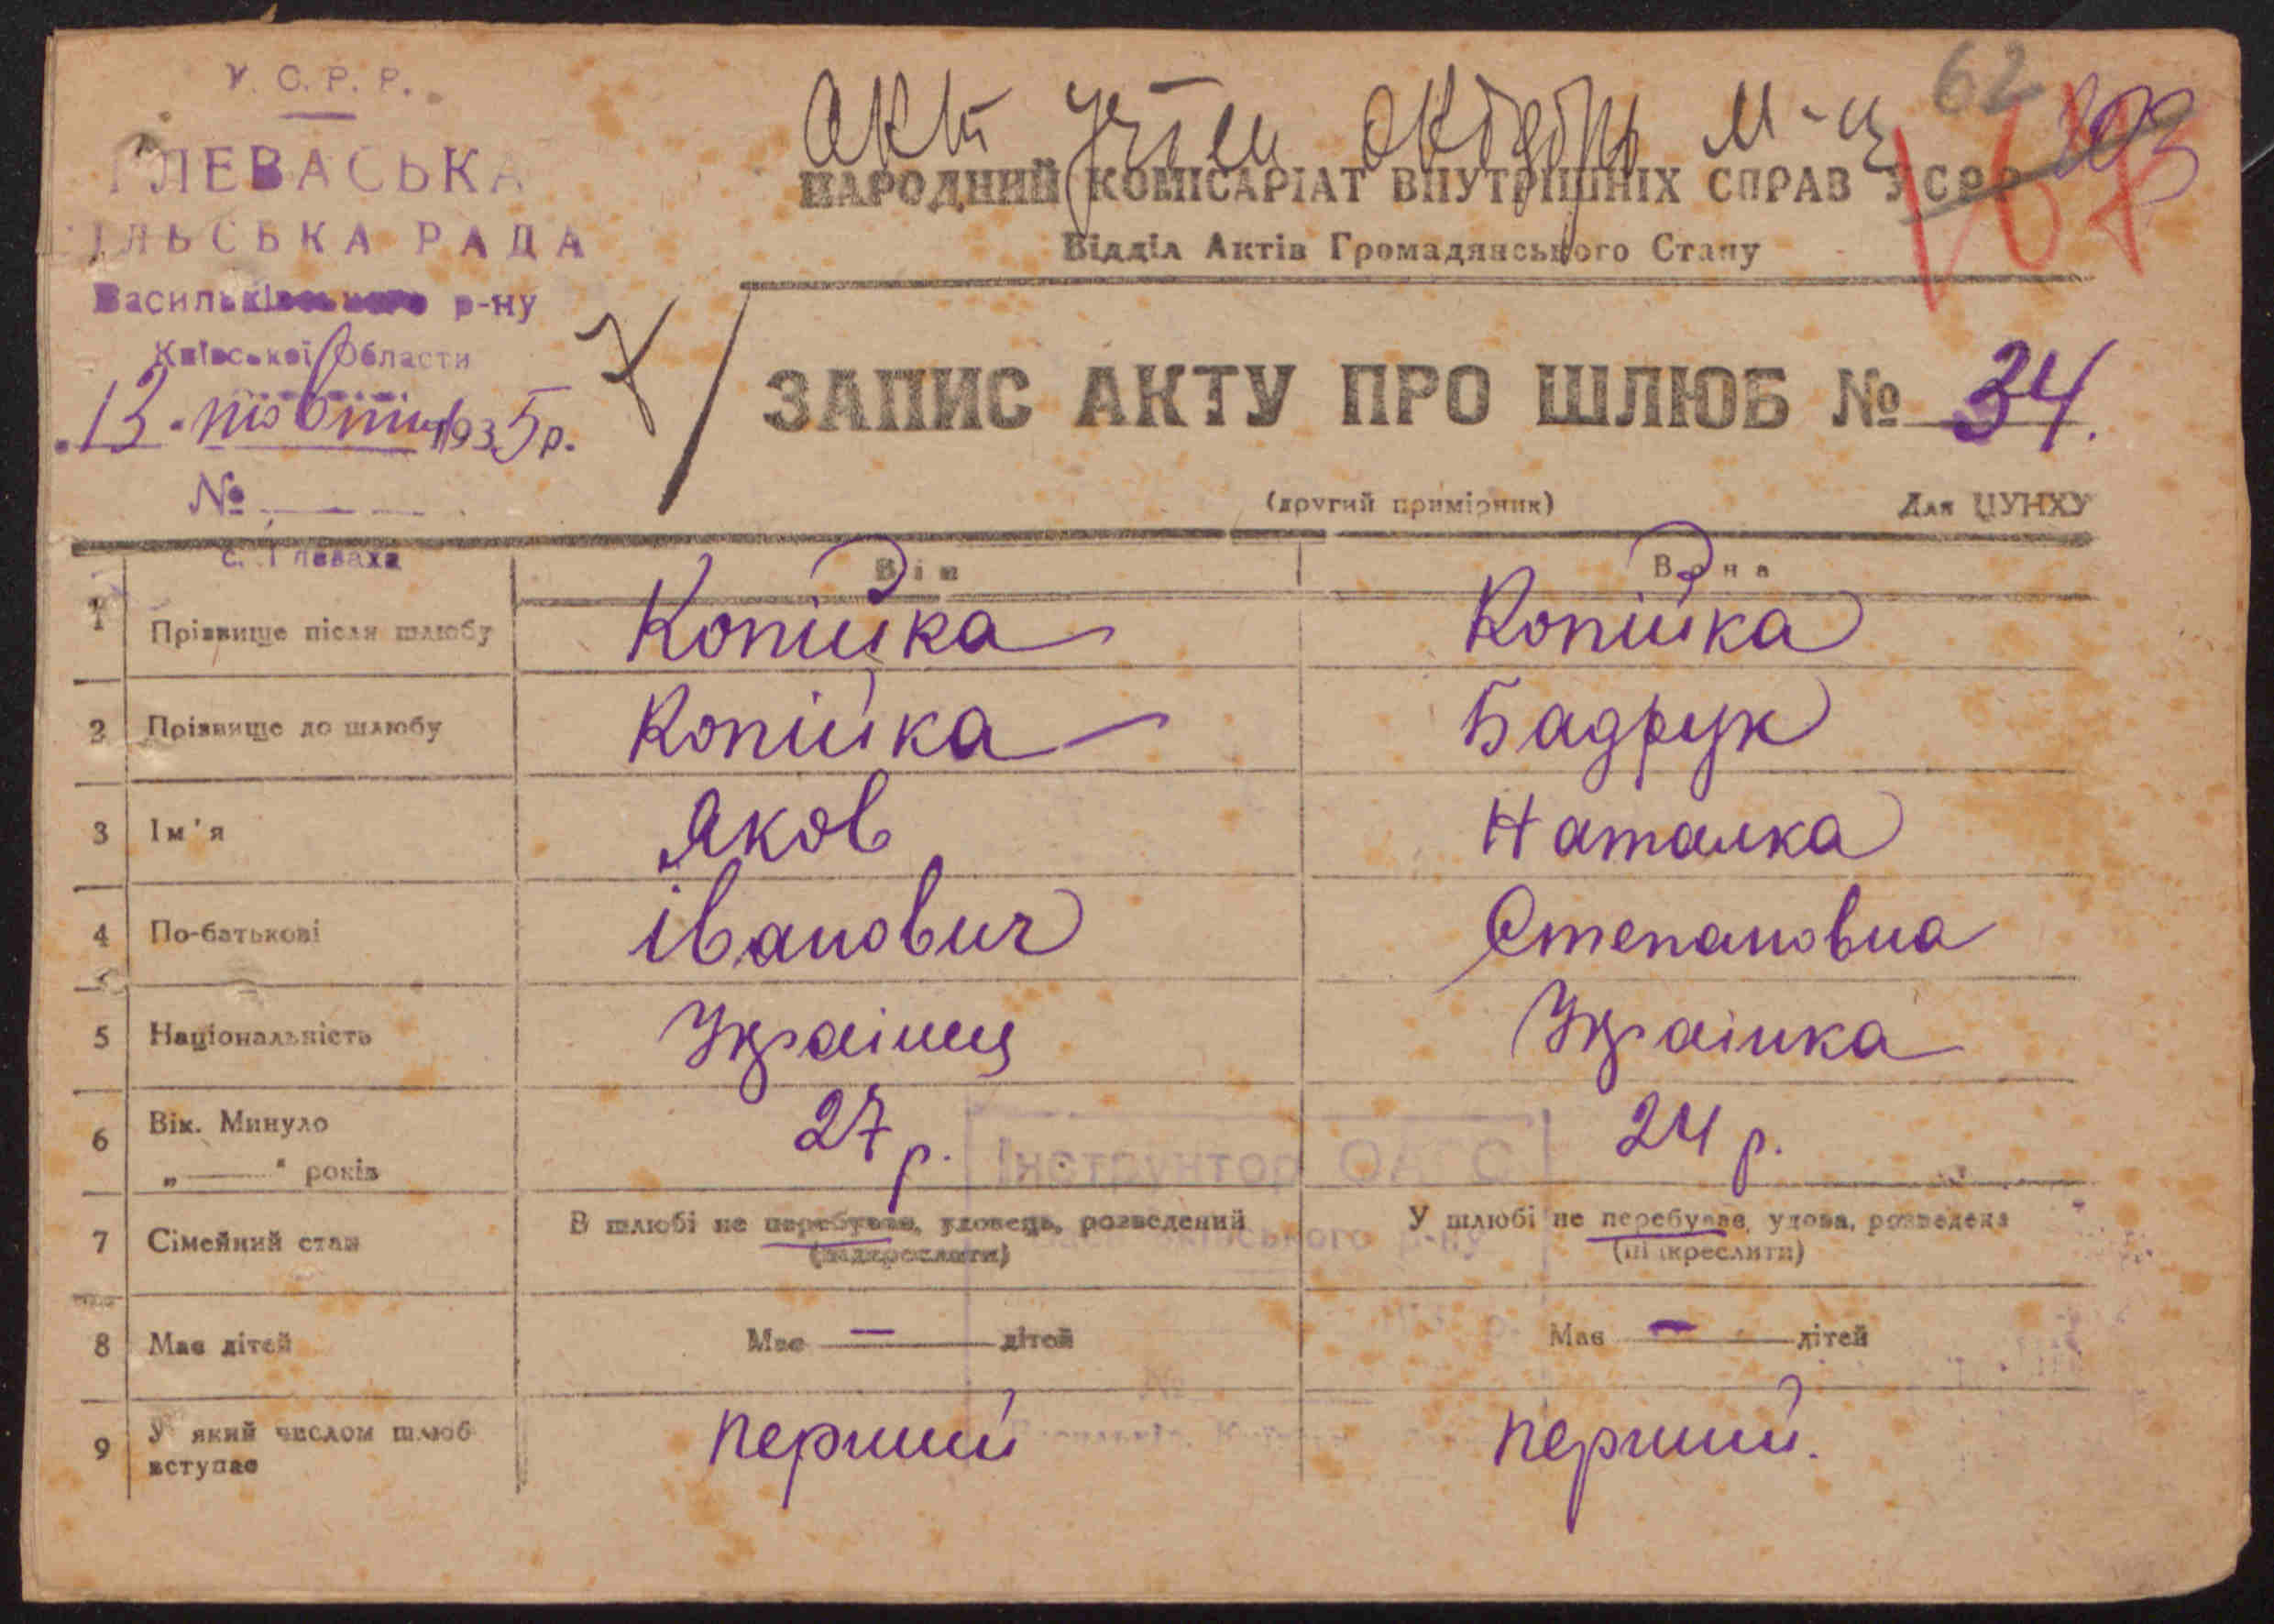 У. С. Р. Р.
ГЛЕВАСЬКА
СІЛЬСЬКА РАДА
Васильківського р-ну
Київської Области
13 жовтня 1935 р.
№
с. Глеваха
62
Акт учтен октябрь м-ц
НАРОДНИЙ КОМІСАРІАТ ВНУТРІШНІХ СПРАВ УСРР
Відділ Актів Громадянського Стану
ЗАПИС АКТУ ПРО ШЛЮБ № 34.
(другий примірник) Для ЦУНХУ
Він Вона
1 Прізвище після шлюбу Копійка Копійка
2 Прізвище до шлюбу Копійка Бадрук
3 Ім'я Яков Наталка
4 По-батькові Іванович Степановна
5 Національність Українец Українка
6 Вік. Минуло 27 р. 24 р.
„ — " років
Інструктор ОАГС
7 Сімейний стан В шлюбі не перебуває, удовець, розведений У шлюбі не перебуває, удова, розведена
(підкреслити) (підкреслити)
8 Має дітей Має — дітей Має — дітей
9 У який числом шлюб перший перший.
вступає